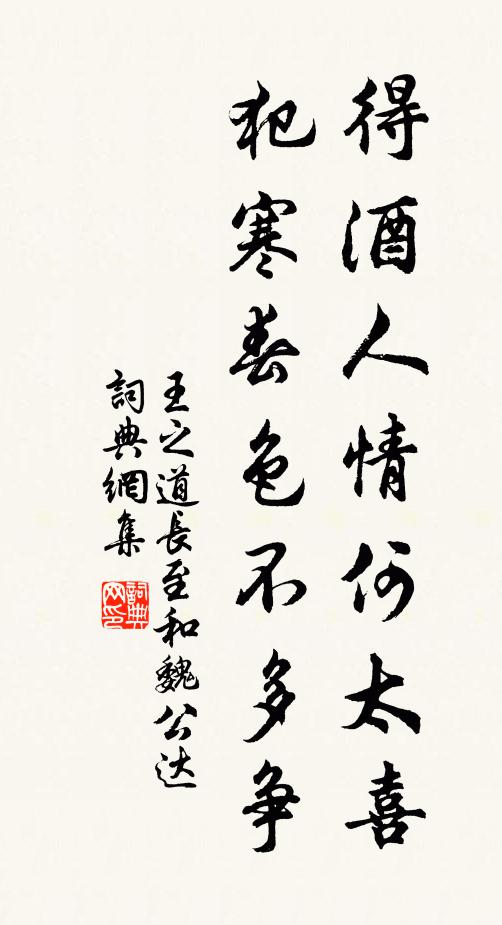 得酒人情何太喜
犯寒春色不多争
王之道長至和魏公达
詞典網集
詞典网印